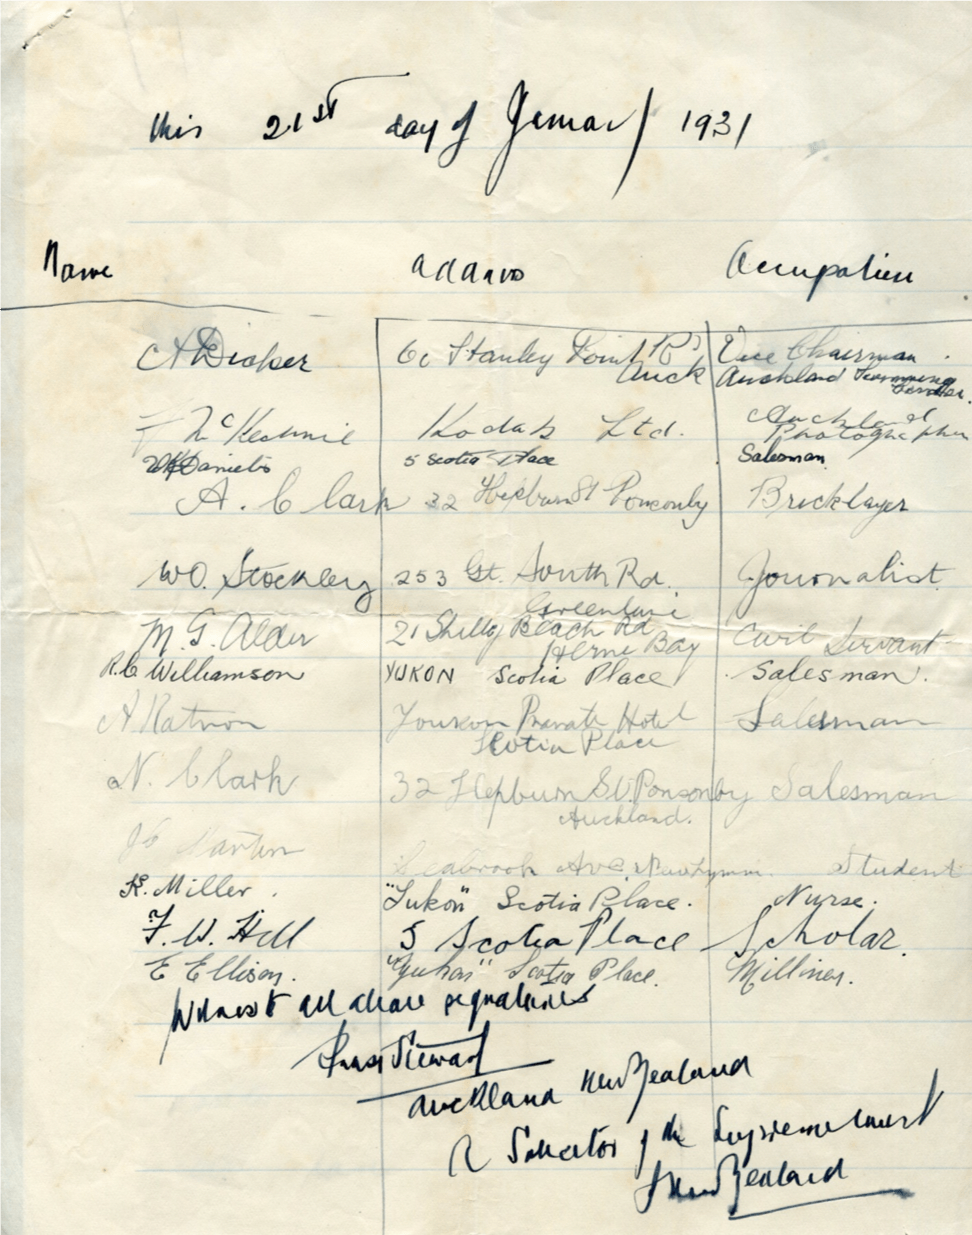 this 21st day of January 1931
Name Address Occupation
60 Stanley Point Rd Vice Chairman
Auck Auckland Swimming
Mc Kechnie Kodak Ltd. Auckland
Photographer
Daniels 5 Scotia Place Salesman
A. Clark 32 Hepburn St Ponsonby Bricklayer
W.O. Stockley 253 Gt. South Rd. Journalist
Greenlane
M. G. Alder 21 Shelly Beach Rd Civil Servant
Herne Bay
R.C. Williamson YUKON Scotia Place Salesman.
A Private Hotel Salesman
Scotia Place
N. Clark 32 Hepburn St. Ponsonby Salesman
Auckland.
Martin Seabrook Ave. New Lynn. Student
K. Miller. "Yukon" Scotia Place. Nurse.
F. W. Hill 5 Scotia Place Scholar.
E Ellison. "Yukon" Scotia Place. Milliner.
Witness to all above signatures
Stewart
Auckland New Zealand
A Solicitor of the Supreme Court
of New Zealand